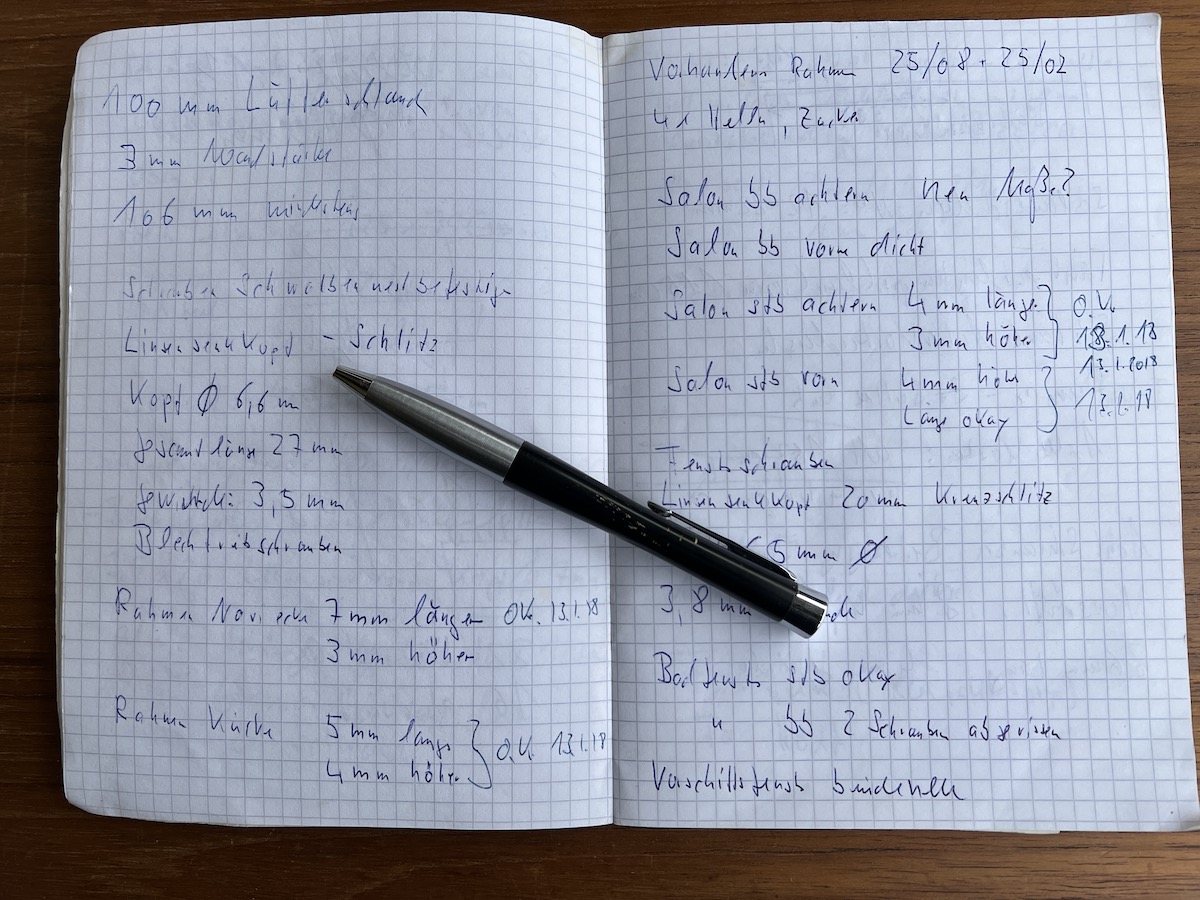 100 mm Lüfterschlauch
3 mm Wandstärke
106 mm mindestens
Schrauben Schwalbennestbefestigung
Linsensenkkopf - Schlitz
Kopf Ø 6,6 mm
gesamtlänge 27 mm
gewinde: 3,5 mm
Blechtreibschrauben
Rahmen Naviecke 7 mm länger OK. 13.1.18
3 mm höher
Rahmen Küche 5 mm länger
4 mm höher O.K. 13.1.18
Vorhandene Rahmen 25/08 + 25/02
4x
Salon bb achtern neu Maße?
Salon bb vorne dicht
Salon stb achtern 4 mm länger O.K.
3 mm höher 13.1.18
Salon stb vorn 4 mm höher 13.1.2018
Länge okay 13.1.18
Fensterschrauben
Linsensenkkopf 20 mm Kreuzschlitz
5 mm Ø
3,8 mm
Badfenster stb okay
" bb 2 Schrauben abgerissen
Vorschiffsfenster